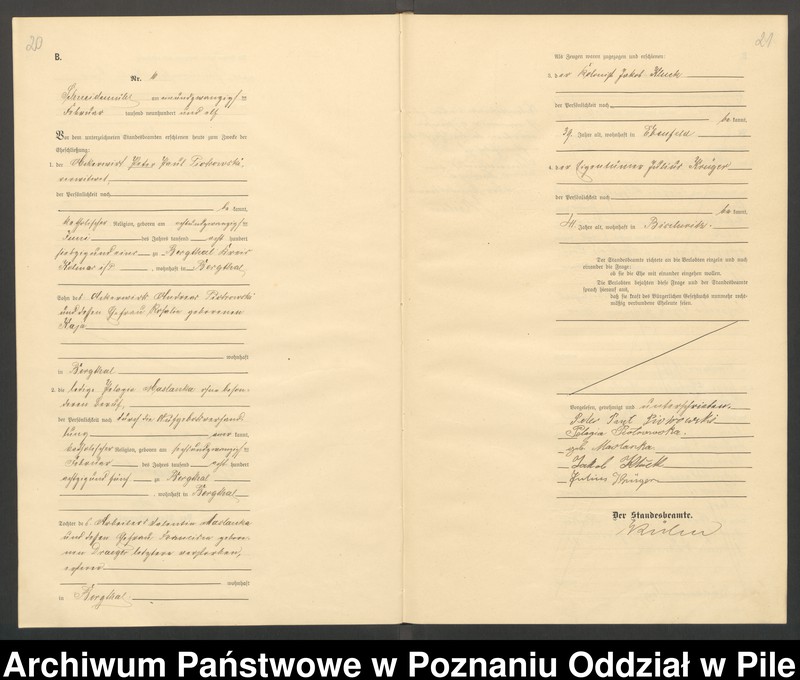 20
B.
Nr. 11
Schneidemühl am neunundzwanzigsten
Februar tausend neunhundert und elf
Vor dem unterzeichneten Standesbeamten erschienen heute zum Zwecke der
Eheschließung:
1. der Ackerwirt Peter Paul Piotrowski
verwitwet,
der Persönlichkeit nach
be kannt,
katholischer Religion, geboren am
Juni des Jahres tausend acht hundert
siebzig und eins zu Bergthal Kreis
Kolmar i/P , wohnhaft in Bergthal,
Sohn des Ackerwirt Andreas Piotrowski
und dessen Ehefrau Rosalie geborenen
Kaja
wohnhaft
in Bergthal
2. die ledige Pelagia Maslanka ohne beson-
deren Beruf,
der Persönlichkeit nach durch die Aufgebotsverhand-
lung kannt,
katholischer Religion, geboren am sechsundzwanzigsten
Oktober des Jahres tausend acht hundert
achtzig und fünf zu Bergthal
, wohnhaft in Bergthal
Tochter des Arbeiters Valentin Maslanka
und dessen Ehefrau Franziska gebore-
nen Draeger letztere verstorben,
ersterer
wohnhaft
in Bergthal
21
Als Zeugen waren zugezogen und erschienen:
3. der Kolonist Jakob Kluck
der Persönlichkeit nach
be kannt,
39 Jahre alt, wohnhaft in Ebenfeld
4. der Eigentümer Julius Krüger
der Persönlichkeit nach
be kannt,
41 Jahre alt, wohnhaft in
Der Standesbeamte richtete an die Verlobten einzeln und nach
einander die Frage:
ob sie die Ehe mit einander eingehen wollen.
Die Verlobten bejahten diese Frage und der Standesbeamte
sprach hierauf aus,
daß sie kraft des Bürgerlichen Gesetzbuchs nunmehr recht-
mäßig verbundene Eheleute seien.
Vorgelesen, genehmigt und unterschrieben.
Peter Paul Piotrowski
Pelagia Piotrowska
geb. Maslanka
Jakob Kluck
Julius Krüger
Der Standesbeamte.
Archiwum Państwowe w Poznaniu Oddział w Pile